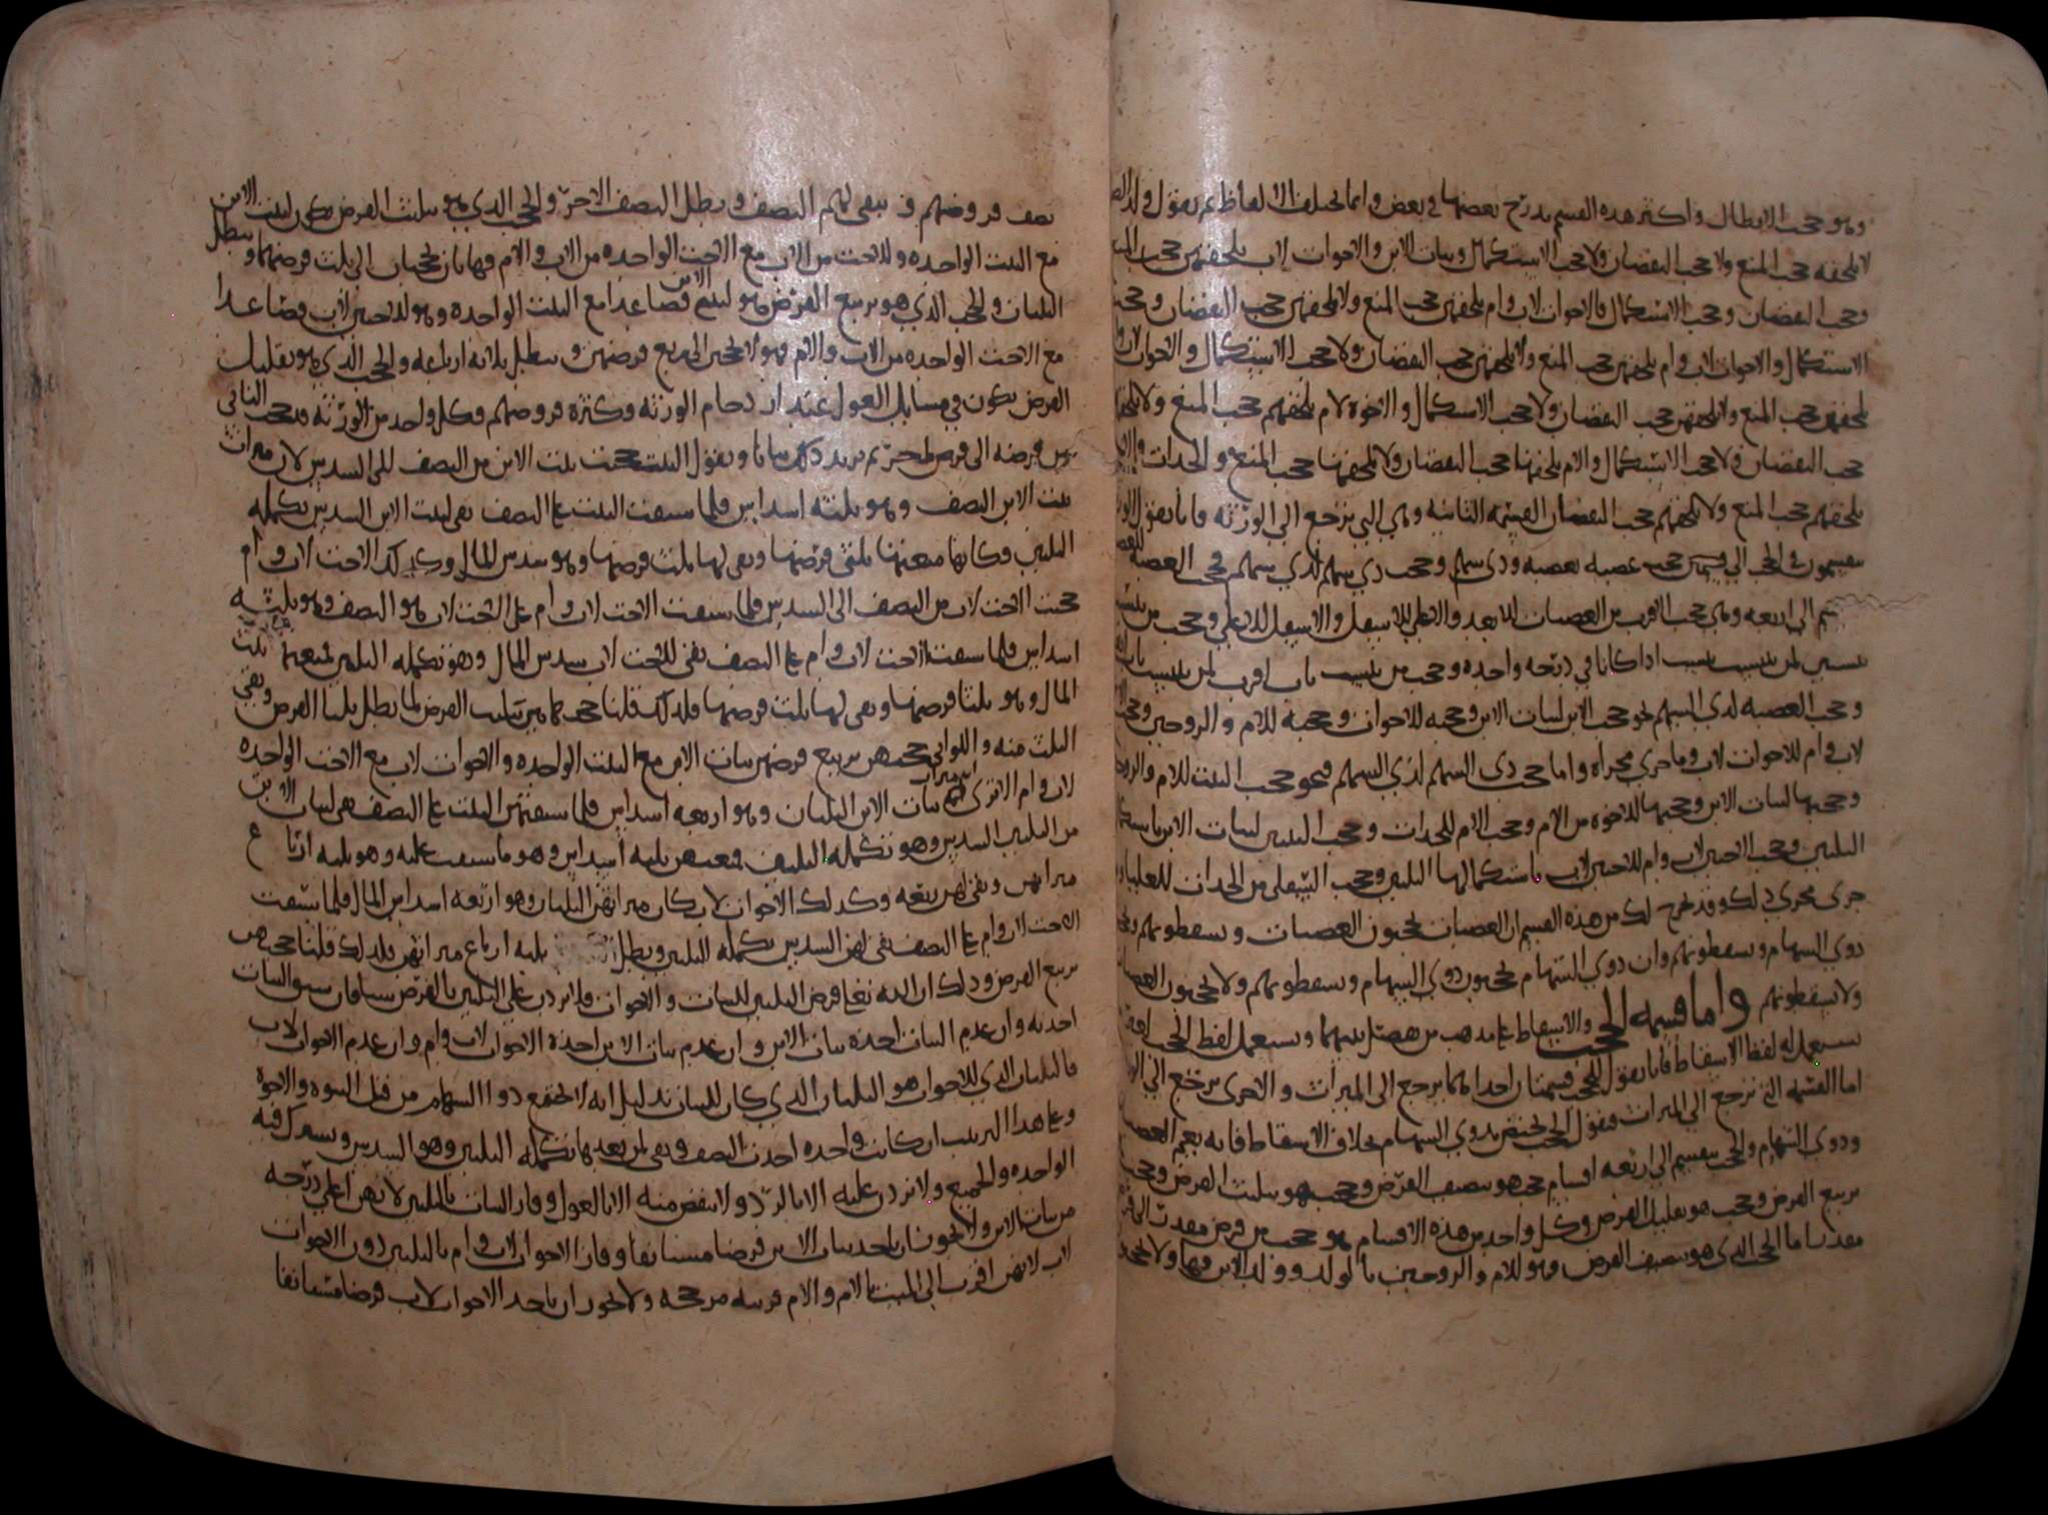 وهو حجب الابطال واكثر هذه القسم يدرج بعضها في بعض وانما تختلف الالفاظ ثم نقول ولد
لا يلحقه حجب المنع ولا حجب النقصان ولا حجب الاستكمال وبنات الابن والاخوات لاب يلحقهن حجب
وحجب النقصان وحجب الاستكمال فالاخوات لاب وام يلحقهن حجب المنع ولا يلحقهن حجب النقصان وحجب
الاستكمال والاخوات لاب وام يلحقهن حجب المنع ولا يلحقهن حجب النقصان ولا حجب الاستكمال والاخوات
يلحقهن حجب المنع ولا يلحقهن حجب النقصان ولا حجب الاستكمال والاخوة لام يلحقهم حجب المنع ولا
حجب النقصان ولا حجب الاستكمال والام يلحقها حجب النقصان ولا يلحقها حجب المنع والجدات
يلحقهم حجب المنع ولا يلحقهم حجب النقصان القسمة الثانية وهي التي ترجع الى الورثة فانا نقول
ينقسمون في الحجب الى قسمين حجب عصبة لعصبة وذي سهم وحجب ذي سهم لذي سهم فحجب العصبة
ينقسم الى اربعة وهي حجب الاقرب من العصبات للابعد والاعلى للاسفل والاسفل للاعلى وحجب من
بنسبين لمن ينتسب بنسب اذا كانا في درجة واحدة وحجب من ينتسب باب اقرب لمن ينتسب
وحجب العصبة لذي السهم نحو حجب الابن لبنات الابن وحجبه للاخوات وحجبه للام والزوجين
لاب وام للاخوات لاب وما جرى مجراه واما حجب ذي السهم لذي السهم فنحو حجب البنت للام
وحجبها لبنات الابن وحجبها للاخوة من الام وحجب الام للجدات وحجب البنتين لبنات الابن
الثلثين وحجب الاختين لاب وام للاختين لاب باستكمالها الثلثين وحجب السفلى من الجدات للعليا
جرى مجرى ذلك وقد خرج لك من هذه القسم ان العصبات يحجبون العصبات ويسقطونهم
ذوي السهام ويسقطونهم وان ذوي السهام يحجبون ذوي السهام ويسقطونهم ولا يحجبون العصبات
ولا يسقطونهم واما قسمة الحجب والاسقاط على مذهب من فصل بينهما ويستعمل لفظ الحجب
يستعمل له لفظ الاسقاط فانا نقول للحجب قسمتان احداهما يرجع الى الميراث والاخرى ترجع الى
اما القسمة التي ترجع الى الميراث فنقول الحجب يختص بذوي السهام بخلاف الاسقاط فانه يعم
وذوي السهام والحجب ينقسم الى اربعة اقسام حجب هو تنصيف الفرض وحجب هو تثليث الفرض وحجب
تربيع الفرض وحجب هو تقليل الفرض وكل واحد من هذه الاقسام هو حجب من فرض مقدر
مقدر اما الحجب الذي هو تنصيف الفرض فهو للام والزوجين بالولد وولد الابن
نصف فروضهم فـ يبقى لهم النصف ويطل النصف الاخر والحجب الذي هو تثليث الفرض يكون لبنت الابن
مع البنت الواحدة وللاخت من الاب مع الاخت الواحدة من الاب والام فهاتان يحجبان الى ثلث فرضهما ويبطل
الثلثان والحجب الذي هو تربيع الفرض هو لبنتي الابن فصاعدا مع البنت الواحدة وهو لاختين لاب فصاعدا
مع الاخت الواحدة من الاب والام فهولا يحجبن الى ربع فرضهن ويبطل ثلاثة ارباعه والحجب الذي هو تقليل
الفرض يكون في مسايل العول عند ازدحام الورثة وكثرة فروضهم فكل واحد من الورثة يحجب الثاني
من فرضه الى فرض اخر ثم نزيد ذلك بيانا ونقول البنت حجبت بنت الابن من النصف الى السدس لان ميراث
بنت الابن النصف وهو ثلثه اسداس فلما سبقت البنت على النصف بقى لبنت الابن السدس تكمله
الثلثين فكانها منعتها ثلثي فرضها وبقى لها ثلث فرضها وهو سدس المال وكذلك الاخت لاب وام
حجبت الاخت لاب من النصف الى السدس فلما سبقت الاخت لاب وام على الاخت لاب هو النصف وهو ثلثه
اسداس فلما سبقت الاخت لاب وام على النصف بقى للاخت لاب سدس المال وهو تكمله الثلثين فمنعها ثلث
المال وهو ثلثا فرضها وبقى لها ثلث فرضها فلذلك قلنا حجب هاتين تثليث الفرض لما بطل ثلثا الفرض وبقى
الثلث منه واللواتي حجبهن تربيع فرضهن بنات الابن مع البنت الواحدة والاخوات لاب مع الاخت الواحدة
لاب وام الا ترى ان ميراث بنات الابن الثلثان وهو اربعه اسداس فلما سبقتهن البنت على النصف بقى لبنات الابن
من الثلثين السدس وهو تكمله الثلثين فمنعهن ثلثه اسداس وهو ما سبقت عليه وهو ثلثه ارباع
ميراثهن وبقى لهن ربعه وكذلك الاخوات لاب كان ميراثهن الثلثان وهو اربعه اسداس المال فلما سبقت
الاخت لاب وام على النصف بقى لهن السدس تكمله الثلثين وبطل ثلثه ارباع ميراثهن فلذلك قلنا حجبهن
تربيع الفرض وذلك ان الله تعالى فرض الثلثين للبنات والاخوات فلا يزدن على الثلثين بالفرض سبقان سبق البنات
اخذنه وان عدم البنات اخذه بنات الابن وان عدم بنات الابن اخذه الاخوات لاب وام وان عدم الاخوات لاب
فالثلثان الذي للاخوات هو الثلثان الذي كان للبنات بدليل انه لا يجتمع ذووا السهام من قبل البنوه والاخوه
وعلى هذا الترتيب ان كانت واحده اخذت النصف وبقى لمن بعدها تكمله الثلثين وهو السدس ويشترك فيه
الواحده والجميع ولا يزدن عليه الا بالرد ولا ينقص منه الا بالعول وفاز البنات بالثلثين لانهن اعلى درجه
من بنات الابن ولا يجوز ان ياخذ بنات الابن فرضا مستانفا وفاز الاخوات لاب وام بالثلثين دون الاخوات
لاب لانهن اقرب الى الميت بالام والام قرينه مرجحه ولا يجوز ان ياخذ الاخوات لاب فرضا مستانفا